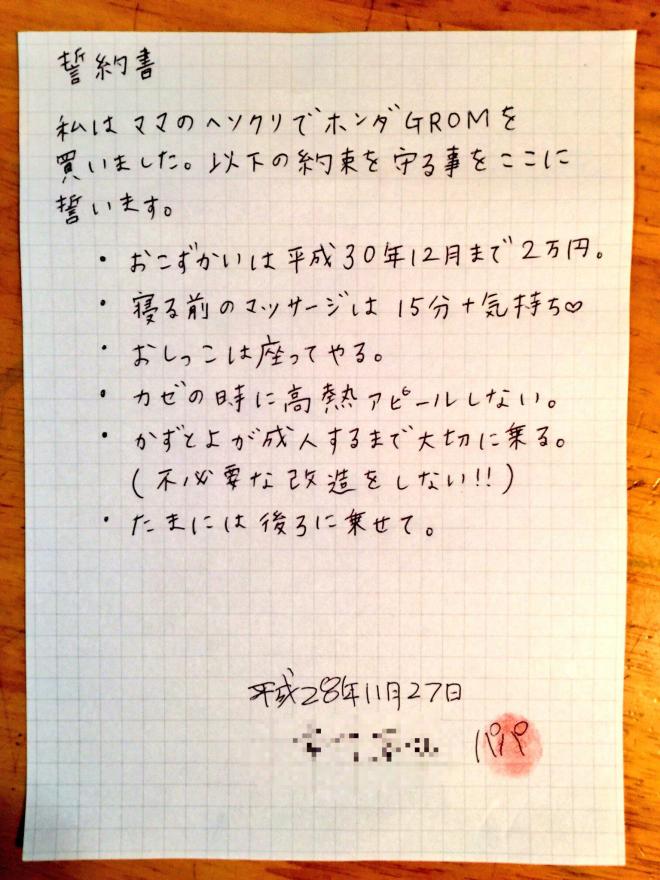 誓約書
私はママのヘソクリでホンダGROMを
買いました。以下の約束を守る事をここに
誓います。
・おこずかいは平成30年12月まで2万円。
・寝る前のマッサージは15分+気持ち♡
・おしっこは座ってやる。
・カゼの時に高熱アピールしない。
・かずとよが成人するまで大切に乗る。
(不必要な改造をしない!!)
・たまには後ろに乗せて。
平成28年11月27日
パパ